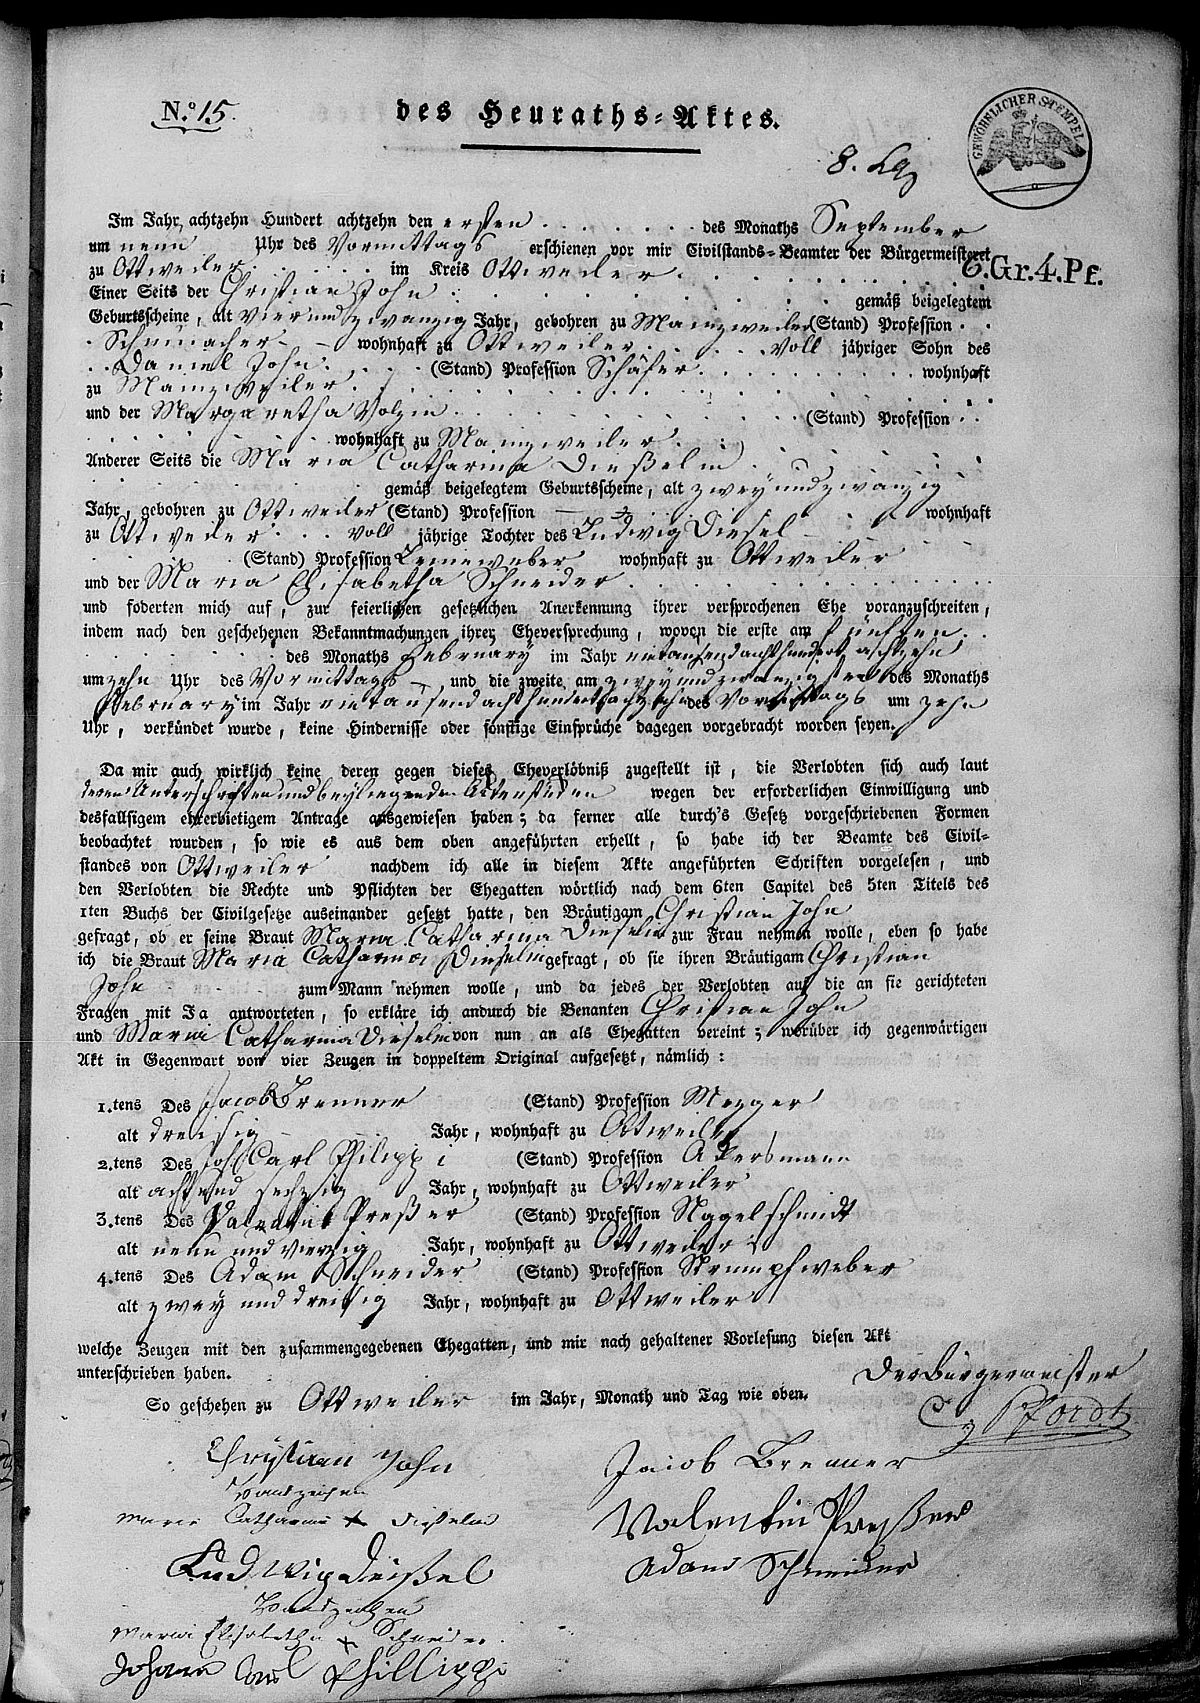 N.º 15.
des Heuraths-Aktes.
GEWÖHNLICHER STEMPEL
8.
Im Jahr achtzehn Hundert achtzehn den ersten . . . . . . des Monaths September
um neun Uhr des Vormittags erschienen vor mir Civilstands-Beamter der Bürgermeisterei
6.Gr.4.Pf.
zu Ottweiler . . . . . im Kreis Ottweiler . . .
Einer Seits der Christian John . . . gemäß beigelegtem
Geburtsscheine, alt vier und zwanzig Jahr, gebohren zu Mainzweiler (Stand) Profession . .
. Schumacher - - wohnhaft zu Ottweiler . . . . . Voll jähriger Sohn des
. . Daniel John . . . . (Stand) Profession Schäfer . . . . . . . . wohnhaft
zu Mainzweiler . . .
und der Margaretha Volzin . . . (Stand) Profession . .
. . . . . . . . . wohnhaft zu Mainzweiler . . .
Anderer Seits die Maria Catharina Dießelin . . .
. . . gemäß beigelegtem Geburtsscheine, alt zwey und zwanzig
Jahr, gebohren zu Ottweiler (Stand) Profession — wohnhaft
zu Ottweiler . . Voll jährige Tochter des Ludwig Diesel -
. . . (Stand) Profession Leineweber wohnhaft zu Ottweiler - -
und der Maria Elisabetha Schneider . . .
und foderten mich auf, zur feierlichen gesetzlichen Anerkennung ihrer versprochenen Ehe voranzuschreiten,
indem nach den geschehenen Bekanntmachungen ihrer Eheversprechung, wovon die erste am fünften . .
. . . des Monaths February im Jahr eintausend achthundert achtzehn
um zehn Uhr des Vormittags — und die zweite am zwey und zwanzigsten des Monaths
February im Jahr eintausend achthundert achtzehn des Vormittags um zehn
Uhr, verkündet wurde, keine Hindernisse oder sonstige Einsprüche dagegen vorgebracht worden seyen.
Da mir auch wirklich keine deren gegen dieses Eheverlöbniß zugestellt ist, die Verlobten sich auch laut
deren Unterschriften und beyliegenden Aktenstücken wegen der erforderlichen Einwilligung und
desfallsigem ehrerbietigem Antrage ausgewiesen haben; da ferner alle durch's Gesetz vorgeschriebenen Formen
beobachtet wurden, so wie es aus dem oben angeführten erhellt, so habe ich der Beamte des Civil-
standes von Ottweiler nachdem ich alle in diesem Akte angeführten Schriften vorgelesen, und
den Verlobten die Rechte und Pflichten der Ehegatten wörtlich nach dem 6ten Capitel des 5ten Titels des
1ten Buchs der Civilgesetze auseinander gesetzt hatte, den Bräutigam Christian John
gefragt, ob er seine Braut Maria Catharina Dieselin zur Frau nehmen wolle, eben so habe
ich die Braut Maria Catharina Dieselin gefragt, ob sie ihren Bräutigam Christian
John - - zum Mann nehmen wolle, und da jedes der Verlobten auf die an sie gerichteten
Fragen mit Ja antworteten, so erkläre ich andurch die Benanten Christian John
und Maria Catharina Dieselin von nun an als Ehegatten vereint; worüber ich gegenwärtigen
Akt in Gegenwart von vier Zeugen in doppeltem Original aufgesetzt, nämlich:
1.tens Des Jacob Brenner (Stand) Profession Mezger
alt dreisig - - Jahr, wohnhaft zu Ottweiler
2.tens Des Joh Carl Philippi (Stand) Profession Akersmann
alt acht und sechzig Jahr, wohnhaft zu Ottweiler
3.tens Des Valentin Preßer (Stand) Profession Nagelschmidt
alt neun und vierzig Jahr, wohnhaft zu Ottweiler
4.tens Des Adam Schneider (Stand) Profession Strumpfweber
alt zwey und dreisig Jahr, wohnhaft zu Ottweiler
welche Zeugen mit den zusammengegebenen Ehegatten, und mir nach gehaltener Vorlesung diesen Akt
unterschrieben haben.
Der Bürgermeister
So geschehen zu Ottweiler im Jahr, Monath und Tag wie oben.
Pfordt
Christian John
Jacob Brenner
Handzeichen
Maria Catharina + Dieselin
Valentin Preßer
Ludwig Deißel
Adam Schneider
Handzeichen
Maria Elisabetha + Schneider
Johann Carl Phillippi